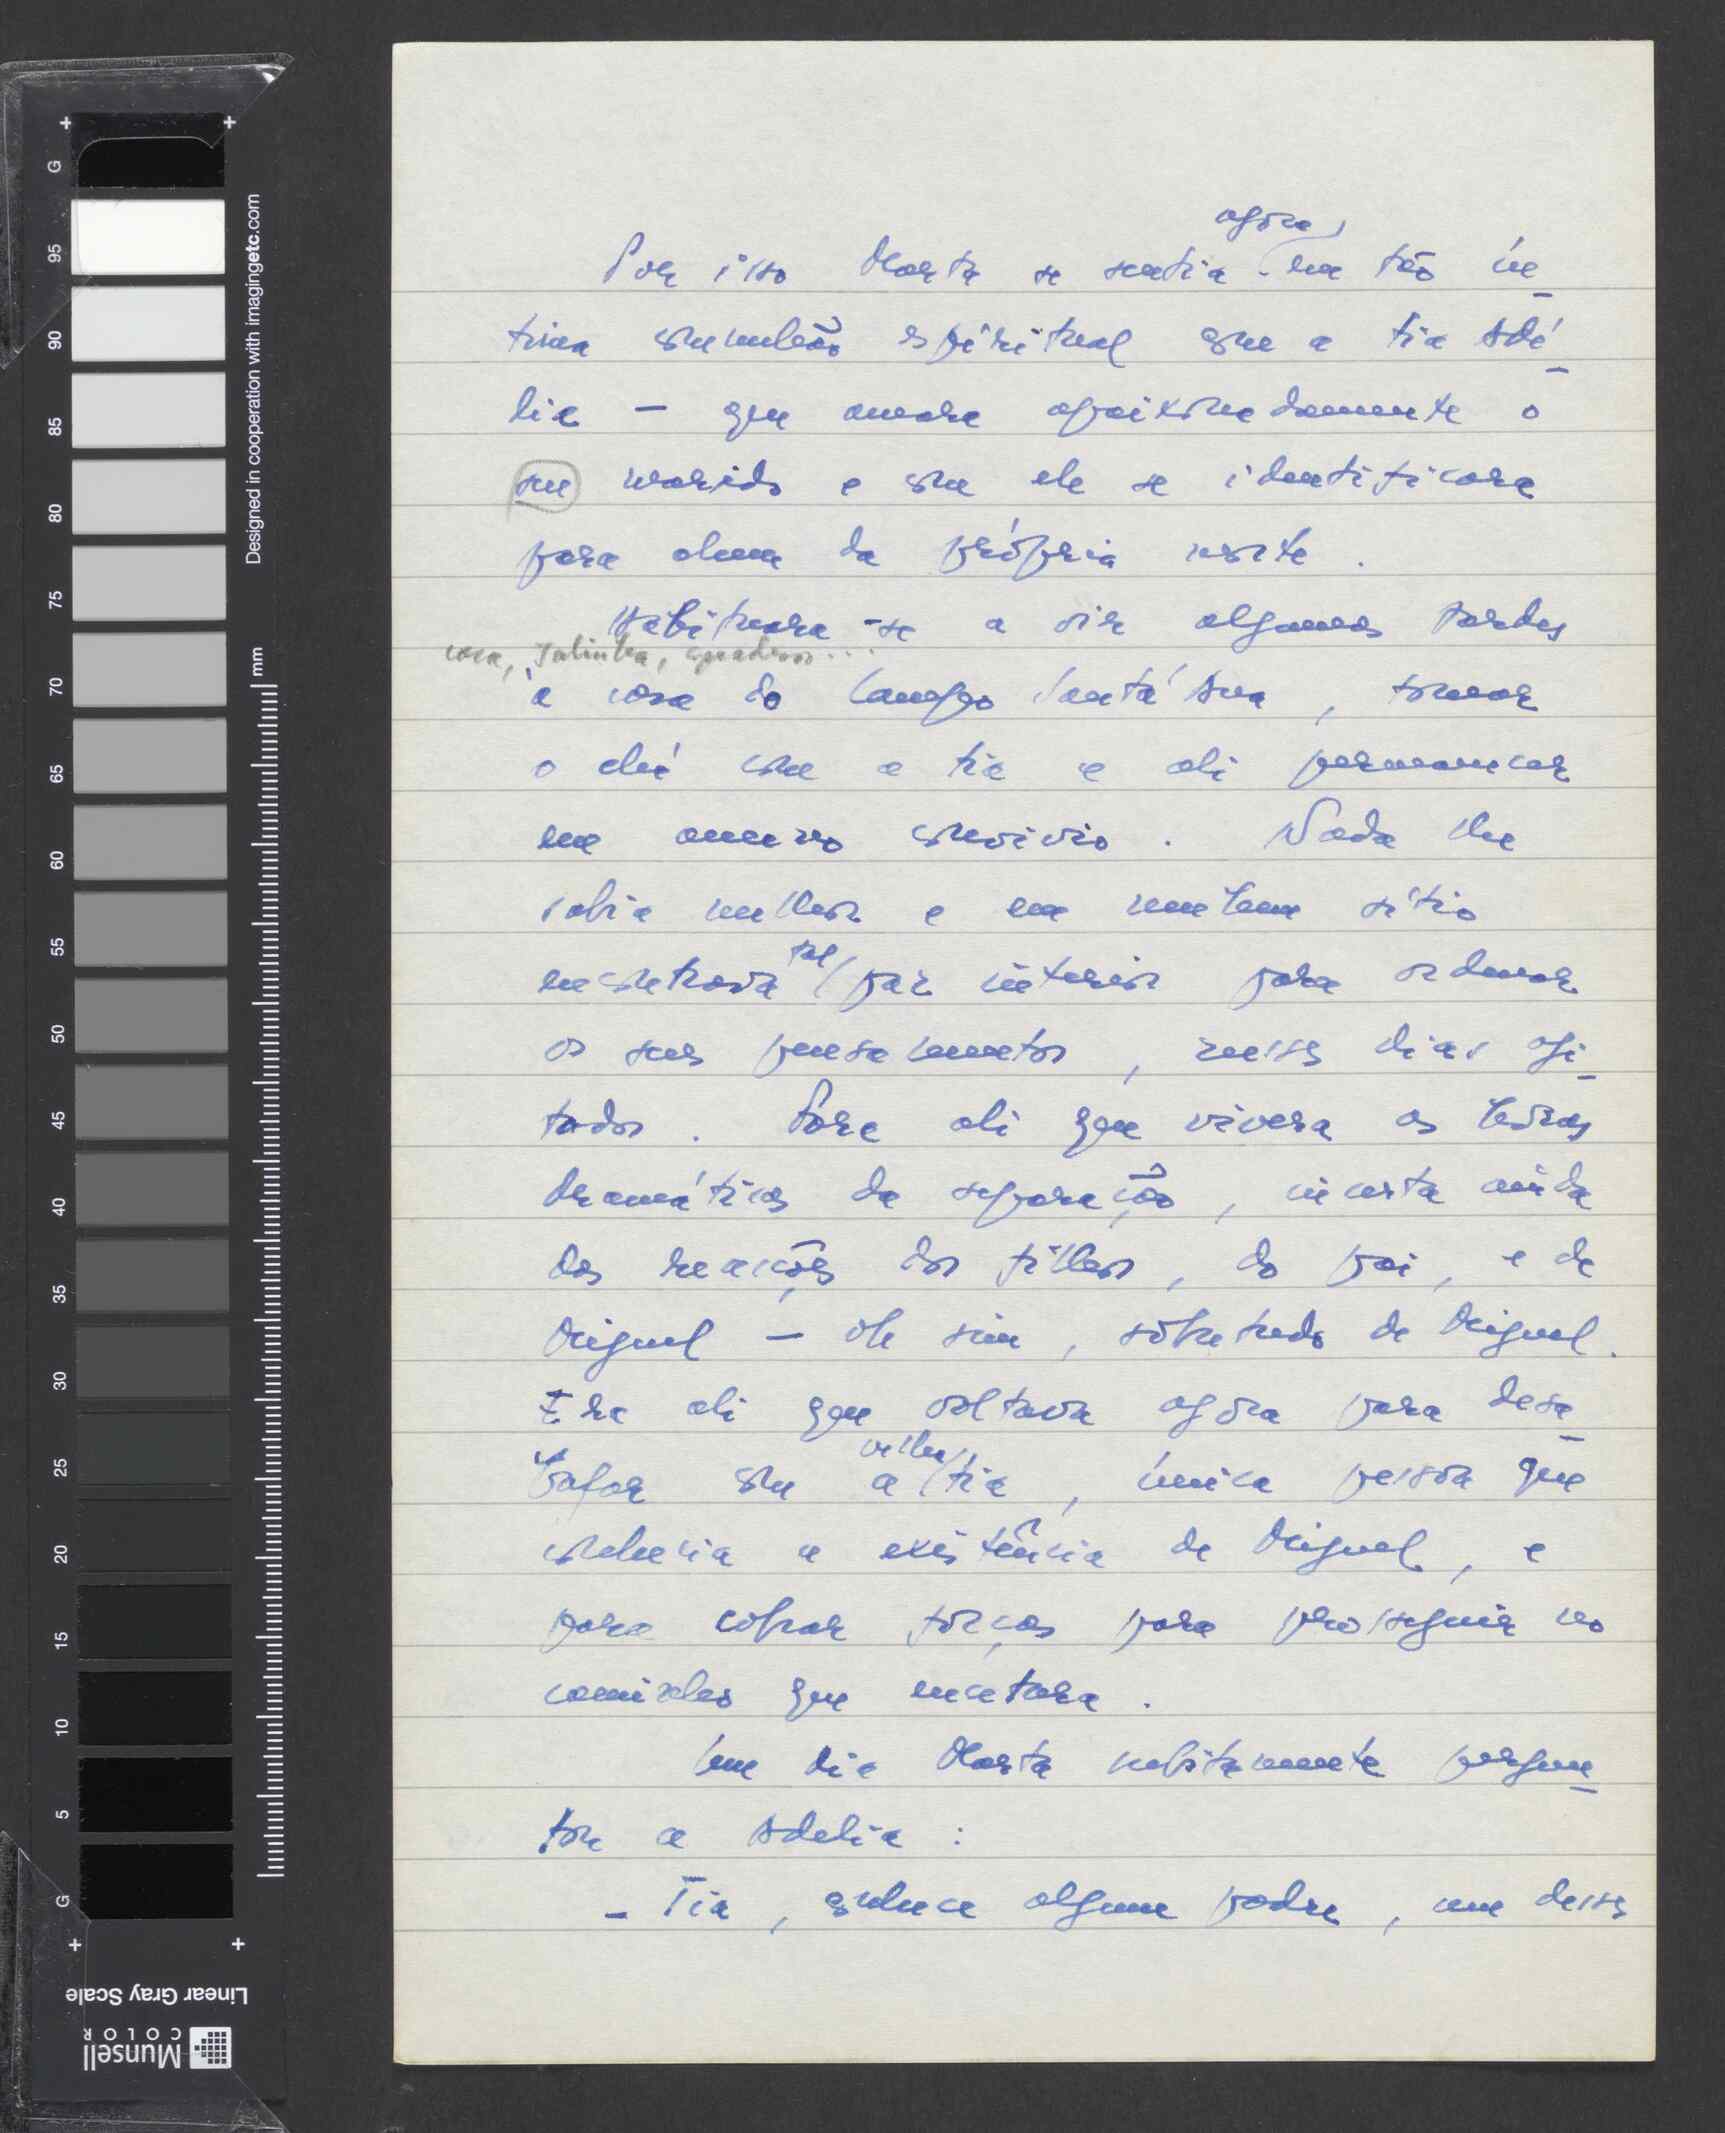 agora
Por isso Marta se sentia em tão ín-
tima comunhão espiritual com a tia Adé-
lia — que amara apaixonadamente o
seu marido e com ele se identificara
para alem da própria morte.
Habituara-se a vir algumas tardes
casa, salinha, quadros...
à casa do Campo Sant'Ana, tomar
o chá com a tia e ali permanecer
em ameno convivio. Nada lhe
sabia melhor e em nenhum sítio
tal
encontrava paz interior para ordenar
os seus pensamentos, nesses dias agi-
tados. Fora ali que vivera as horas
dramáticas da separação, incerta ainda
das reacções dos filhos, do pai, e de
Miguel — oh sim, sobretudo de Miguel.
Era ali que voltava agora para desa-
velha
bafar com a tia, única pessoa que
conhecia a existência de Miguel, e
para cobrar forças para prosseguir no
caminho que encetara.
Um dia Marta subitamente pergun-
tou a Adelia:
- Tia, conhece algum padre, um desses
G 95 90 85 80 75 70 65 60 55 50 45 40 35 30 25 20 15 10 5 G
mm
Designed in cooperation with imagingetc.com
Linear Gray Scale
Munsell
COLOR